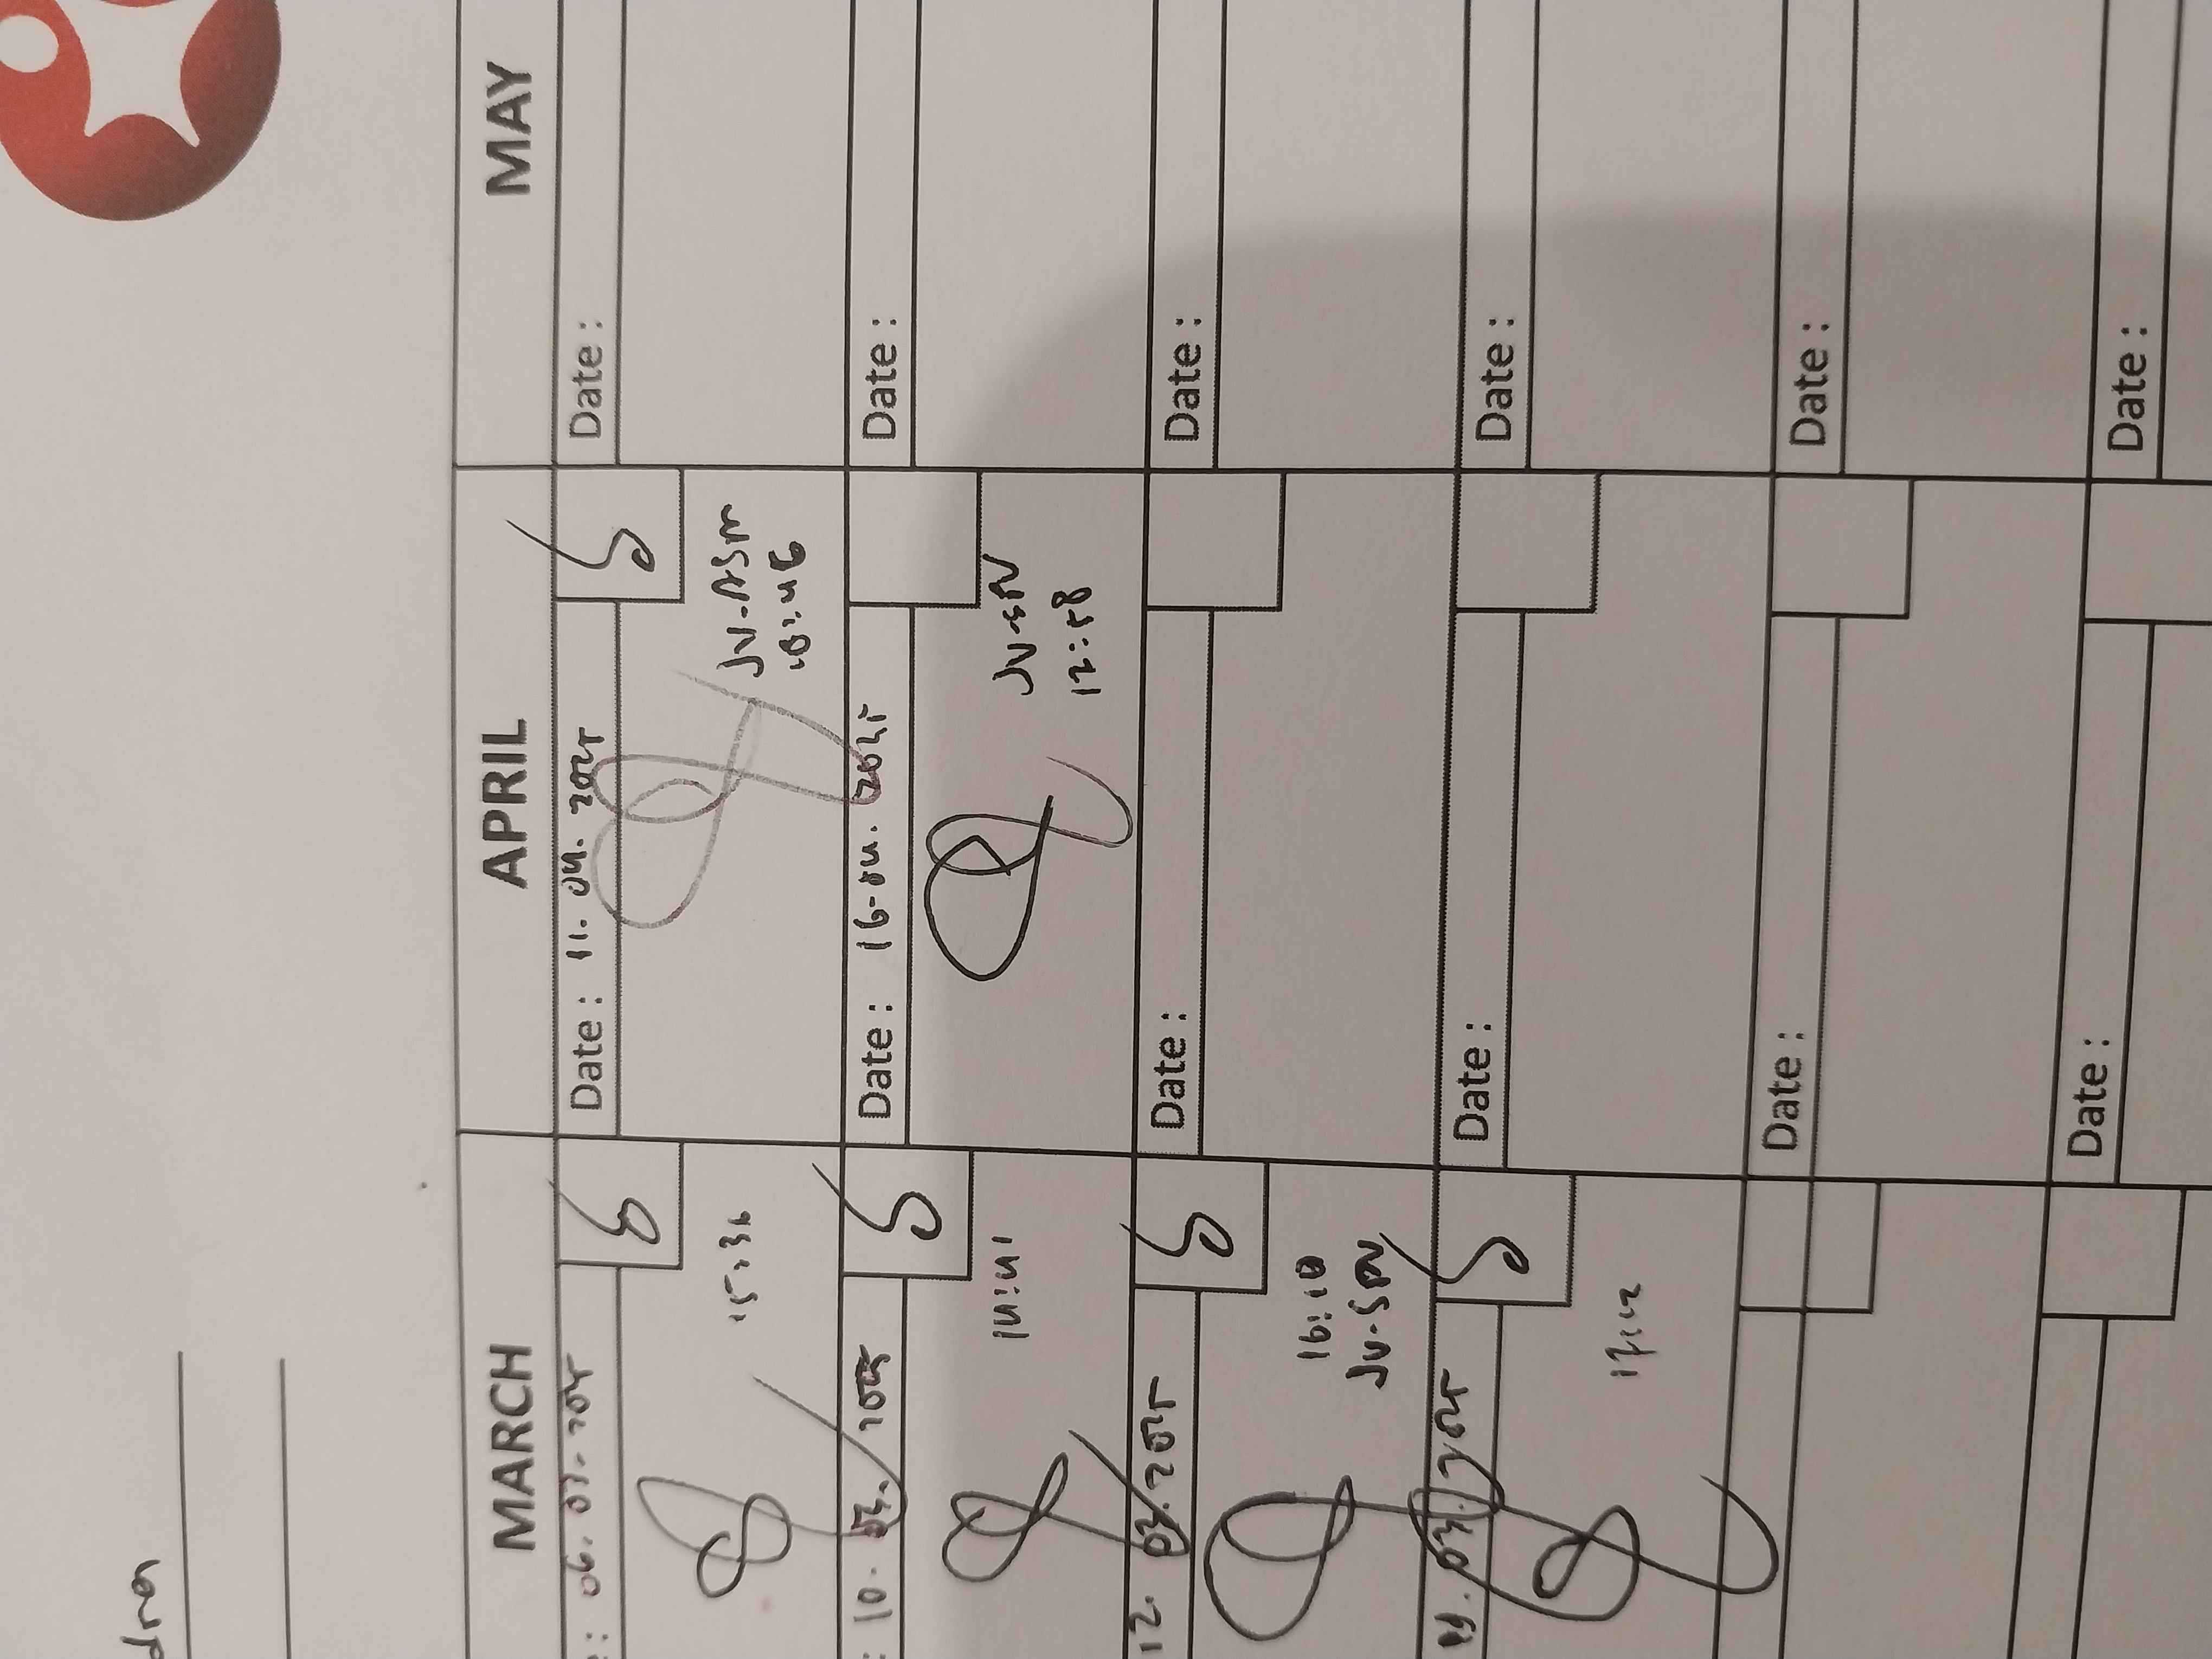 dra
MARCH APRIL MAY
: 06.03.2025 Date : 11.04.2025 Date :
15:36 JV-ASM
18:46
: 10.03.2025 Date : 16.04.2025 Date :
14:41 JV-SPV
12:58
12.03.2025 Date : Date :
16:10
JV-SPV
19.03.2025 Date : Date :
17:12
Date : Date :
Date : Date :